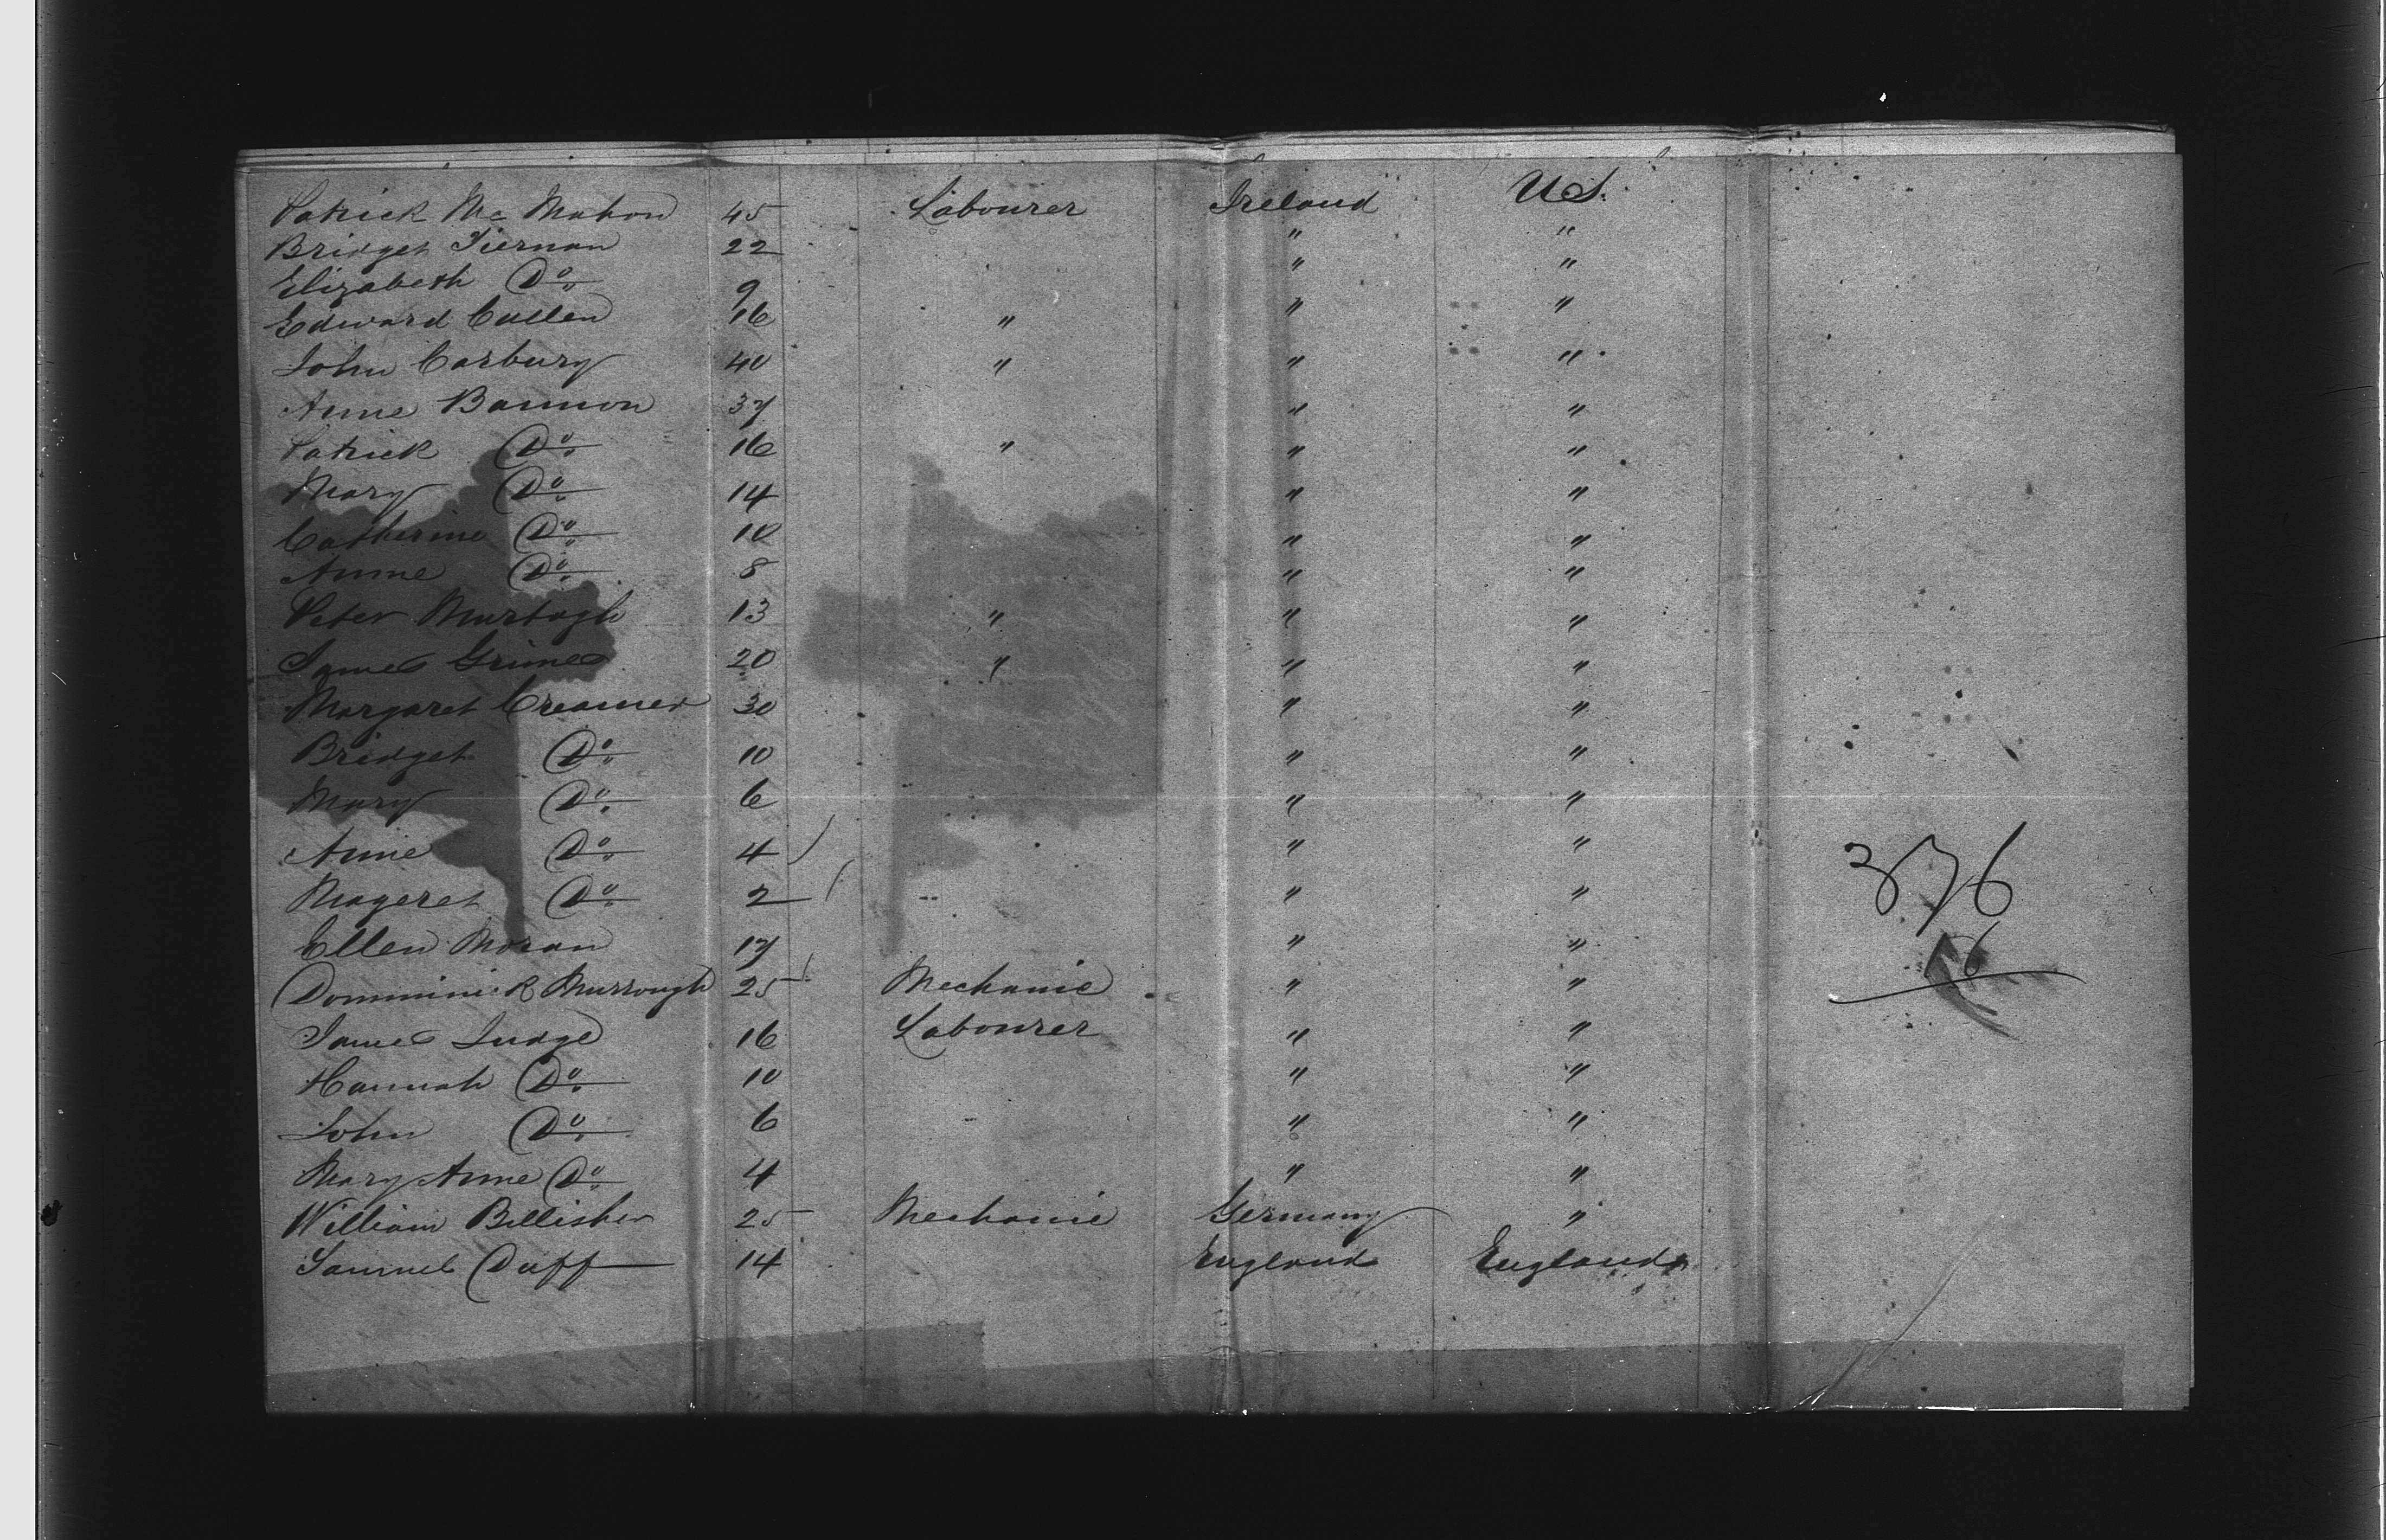 Patrick Mc Mahon 45 Labourer Ireland U.S.
Bridget Tiernan 22 " "
Elizabeth Do 9 " "
Edward Cullen 16 " " "
John Carbury 40 " " "
Anne Bannon 37 " "
Patrick Do 16 " " "
Mary Do 14 " "
Catherine Do 10 " "
Anne Do 8 " "
Peter Murtagh 13 " " "
James Grimes 20 " " "
Margaret Creamer 30 " "
Bridget Do 10 " "
Mary Do 6 " "
Anne Do 4 " "
Mageret Do 2 " "
Ellen Moran 17 " "
Domminick Murrough 25 Mechanic " "
James Judge 16 Labourer " "
Hannah Do 10 " "
John Do 6 " "
Mary Anne Do 4 " "
William Billisher 25 Mechanic Germany "
Samuel Duff 14 England England
376
6